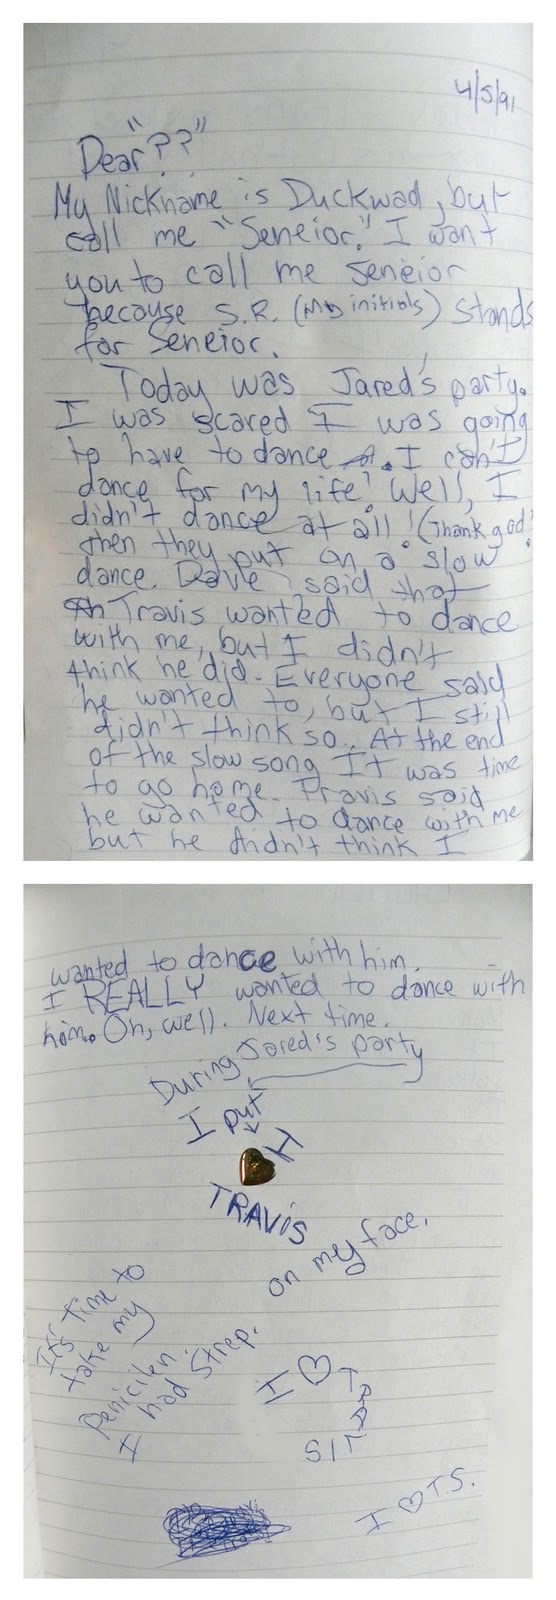 4/5/91
Dear "??"
My Nickname is Duckwad, but
call me "Seneior." I want
you to call me seneior
because S.R. (My initials) stands
for Seneior.
Today was Jared's party.
I was scared I was going
to have to dance. I can't
dance for my life! Well, I
didn't dance at all! (Thank god!
Then they put on a slow
dance. Dave said that
Travis wanted to dance
with me, but I didn't
think he did. Everyone said
he wanted to, but I still
didn't think so. At the end
of the slow song It was time
to go home. Travis said
he wanted to dance with me
but he didn't think I
wanted to dance with him.
I REALLY wanted to dance with
him. Oh, well. Next time.
During Jared's party
I put
I
TRAVIS
on my face.
It's time to
take my
Penicilen.
I had Strep.
I ♡ TRAVIS
I ♡ T.S.